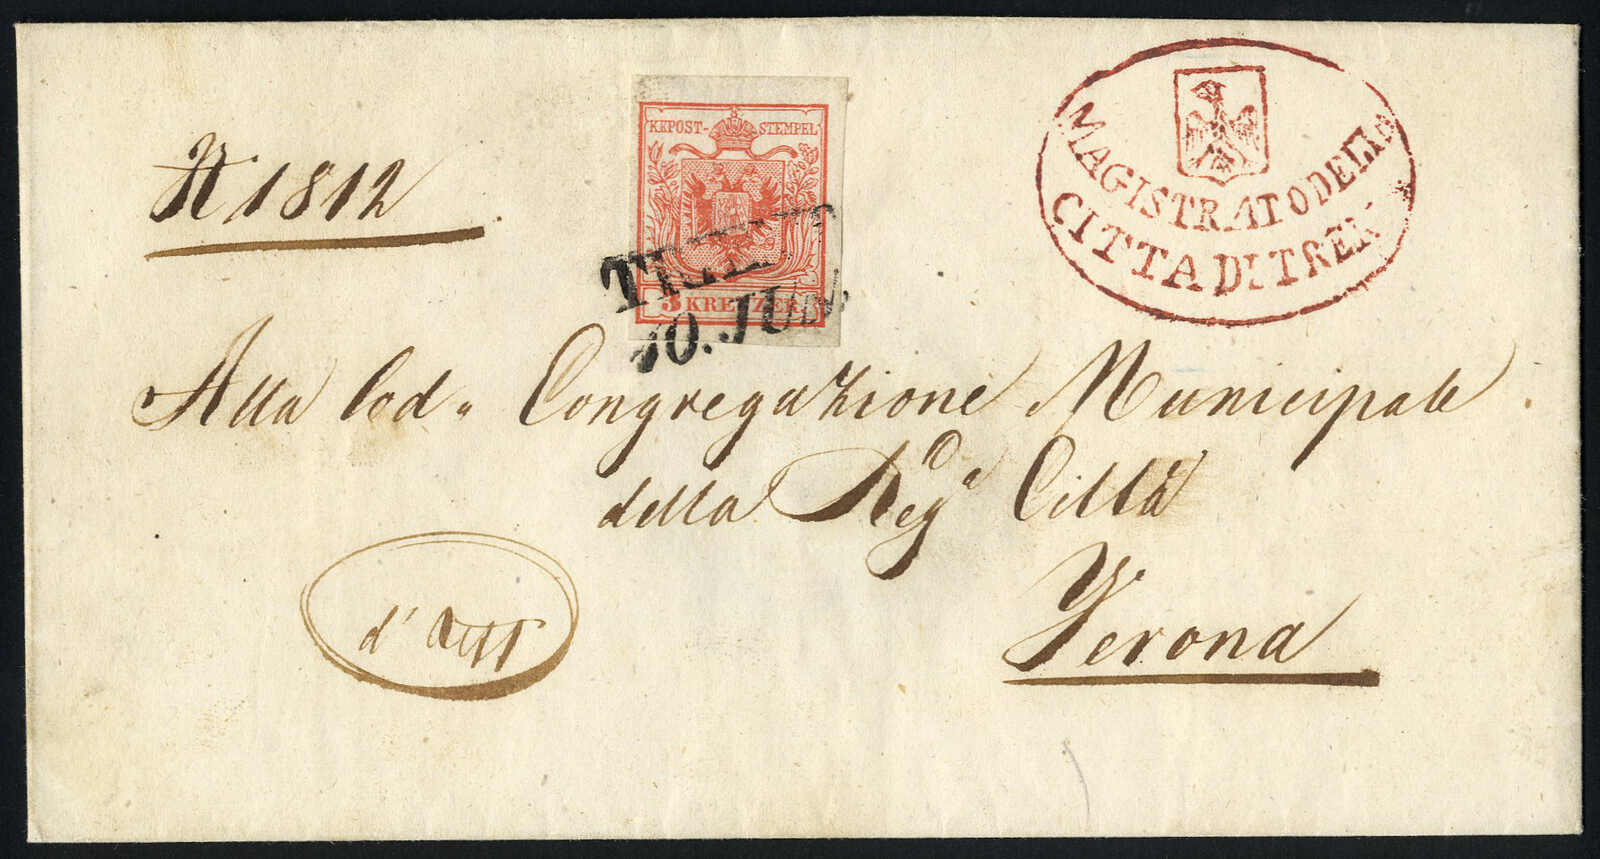 N 1812
KKPOST-STEMPEL
3 KREUZER
TRIENT
10. JUL.
MAGISTRATO DELLA
CITTA DI TREN
Alla Lod. Congregazione Municipale
della Reg.a Città
Verona